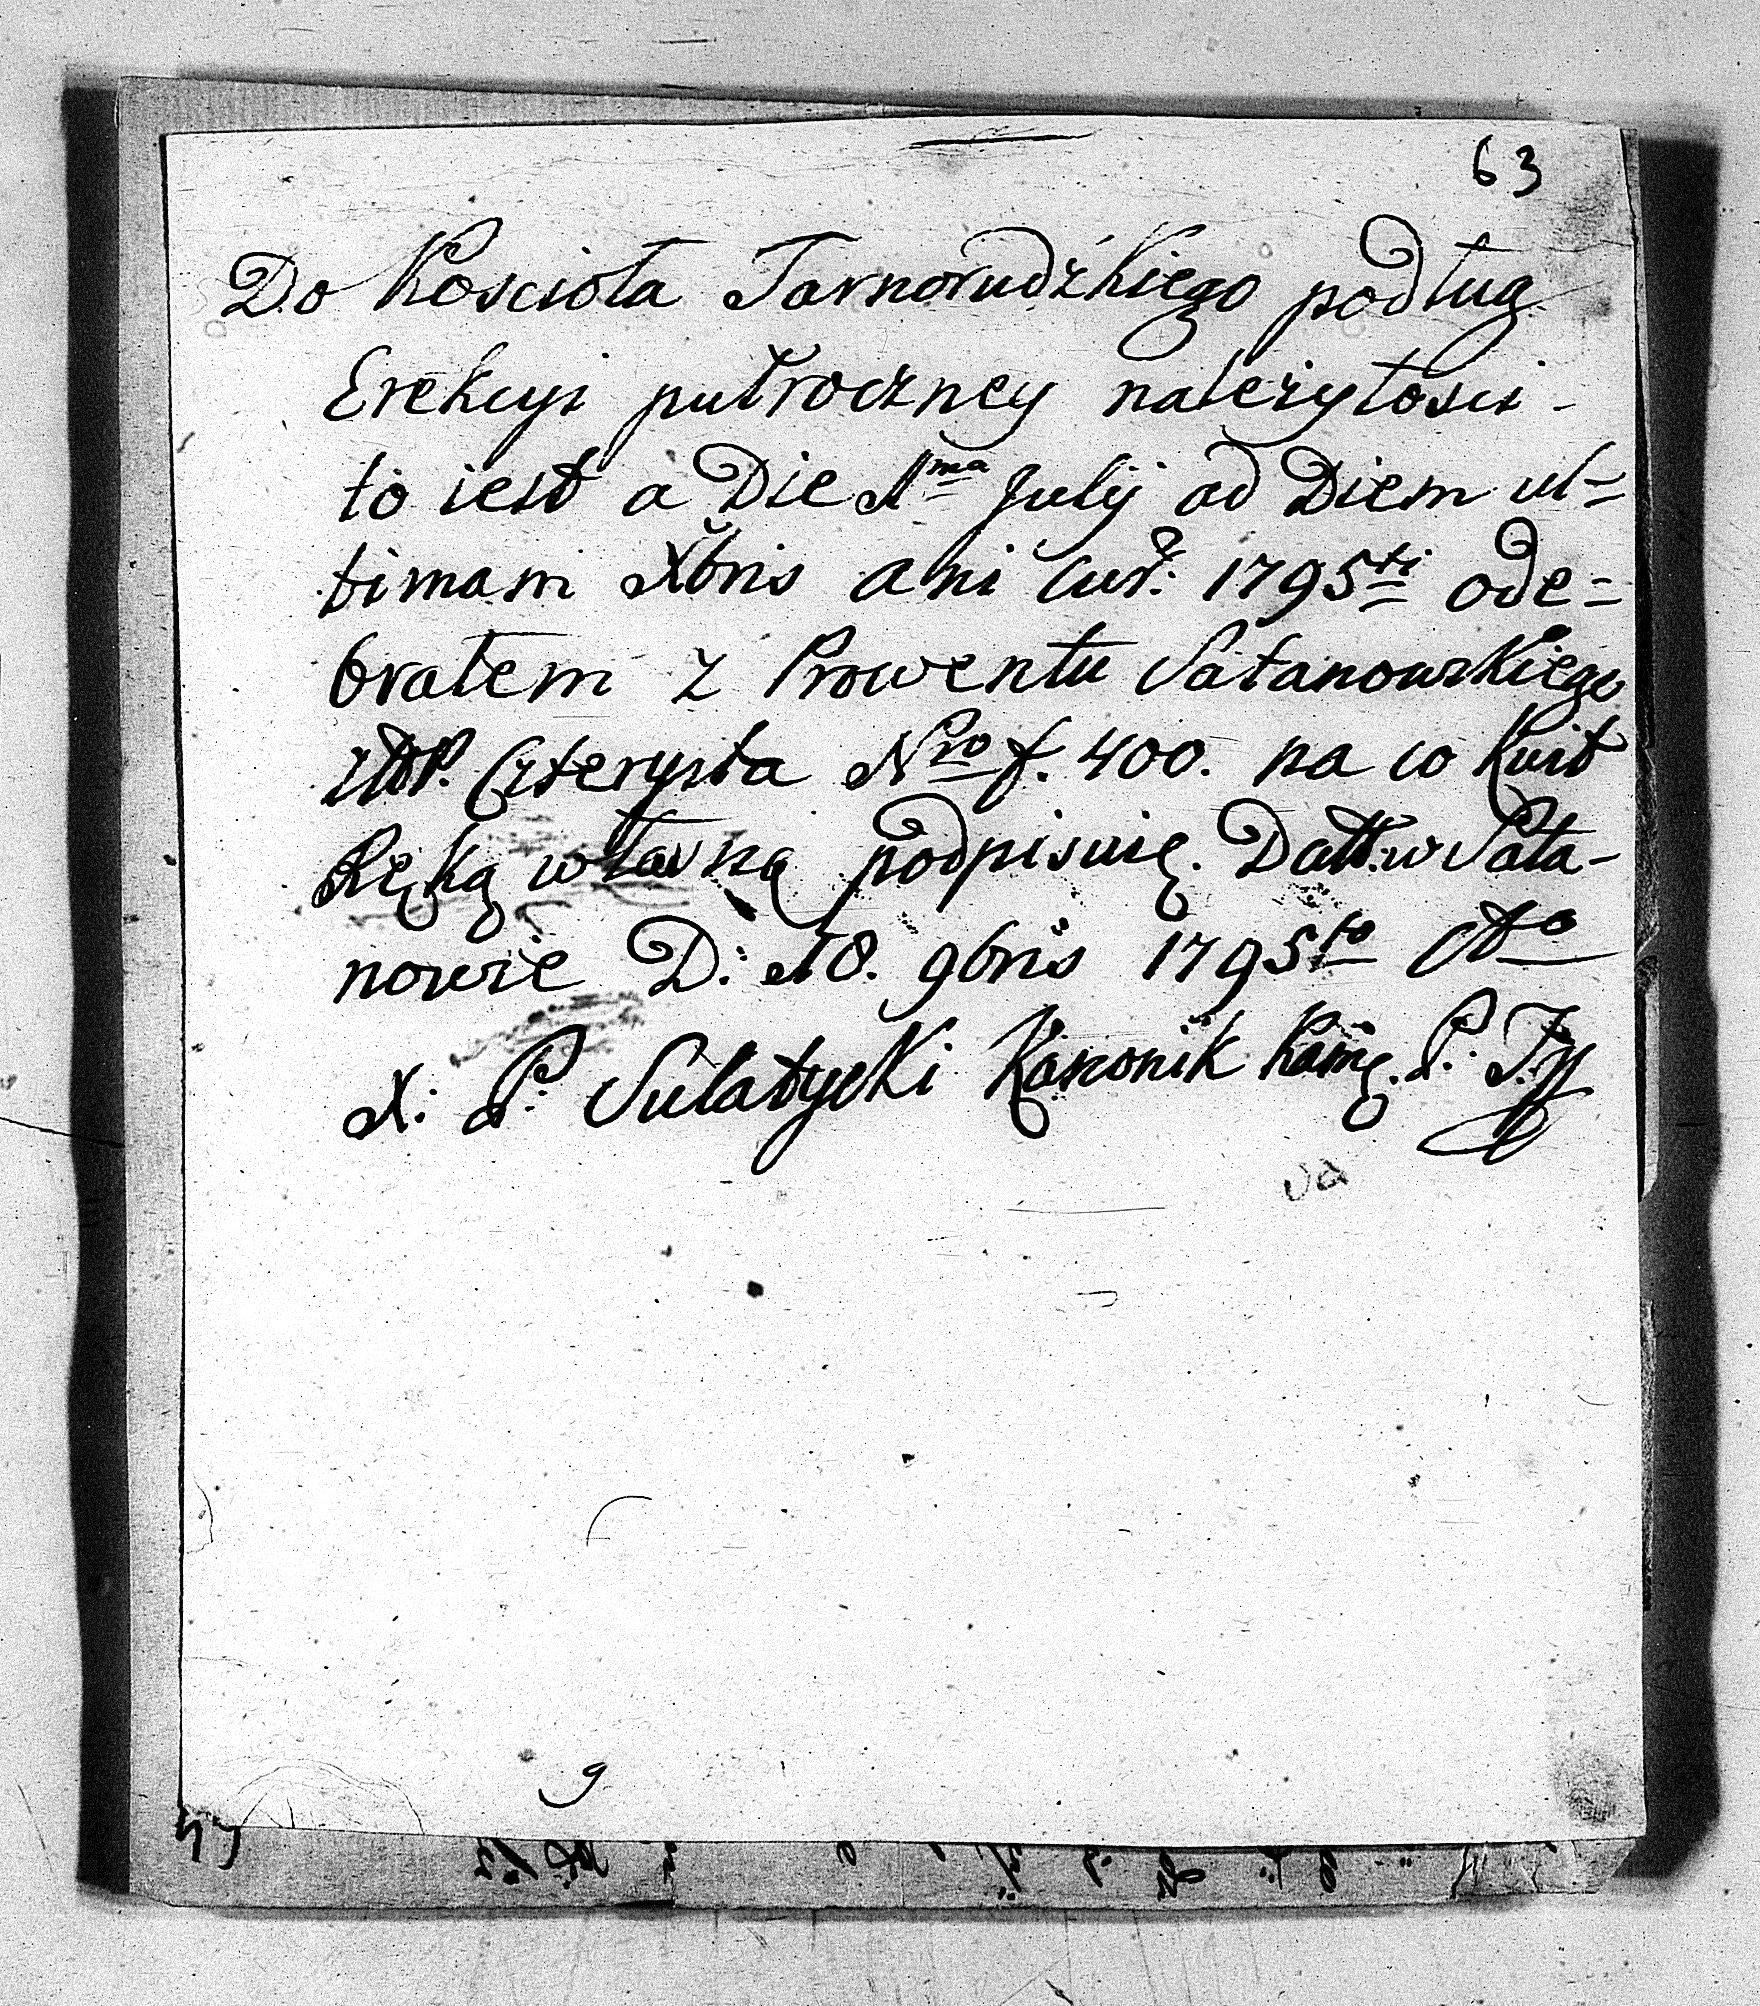 63
Do Koscioła Tarnorudzkiego podług
Erekcyi pułroczney należytosci -
to iest a Die 1ma Julij ad Diem ul=
timam Xbris Ani Cur: 1795ti ode=
brałem z Prowentu Satanowskiego
Czterysta Nro f. 400. na co Kwit
Ręką własną podpisuię. Datt. w Sata-
nowie D: 18. 9bris 1795to Ao
X: P: Sulatycki Kanonik Kamę. P.